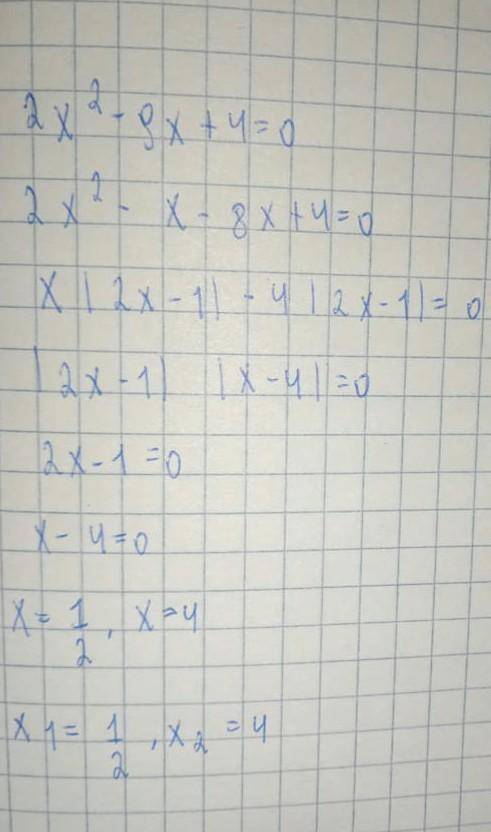 2x² - 9x + 4 = 0
2x² - x - 8x + 4 = 0
x |2x - 1| - 4 |2x - 1| = 0
|2x - 1| |x - 4| = 0
2x - 1 = 0
x - 4 = 0
x = 1/2, x = 4
x1 = 1/2, x2 = 4